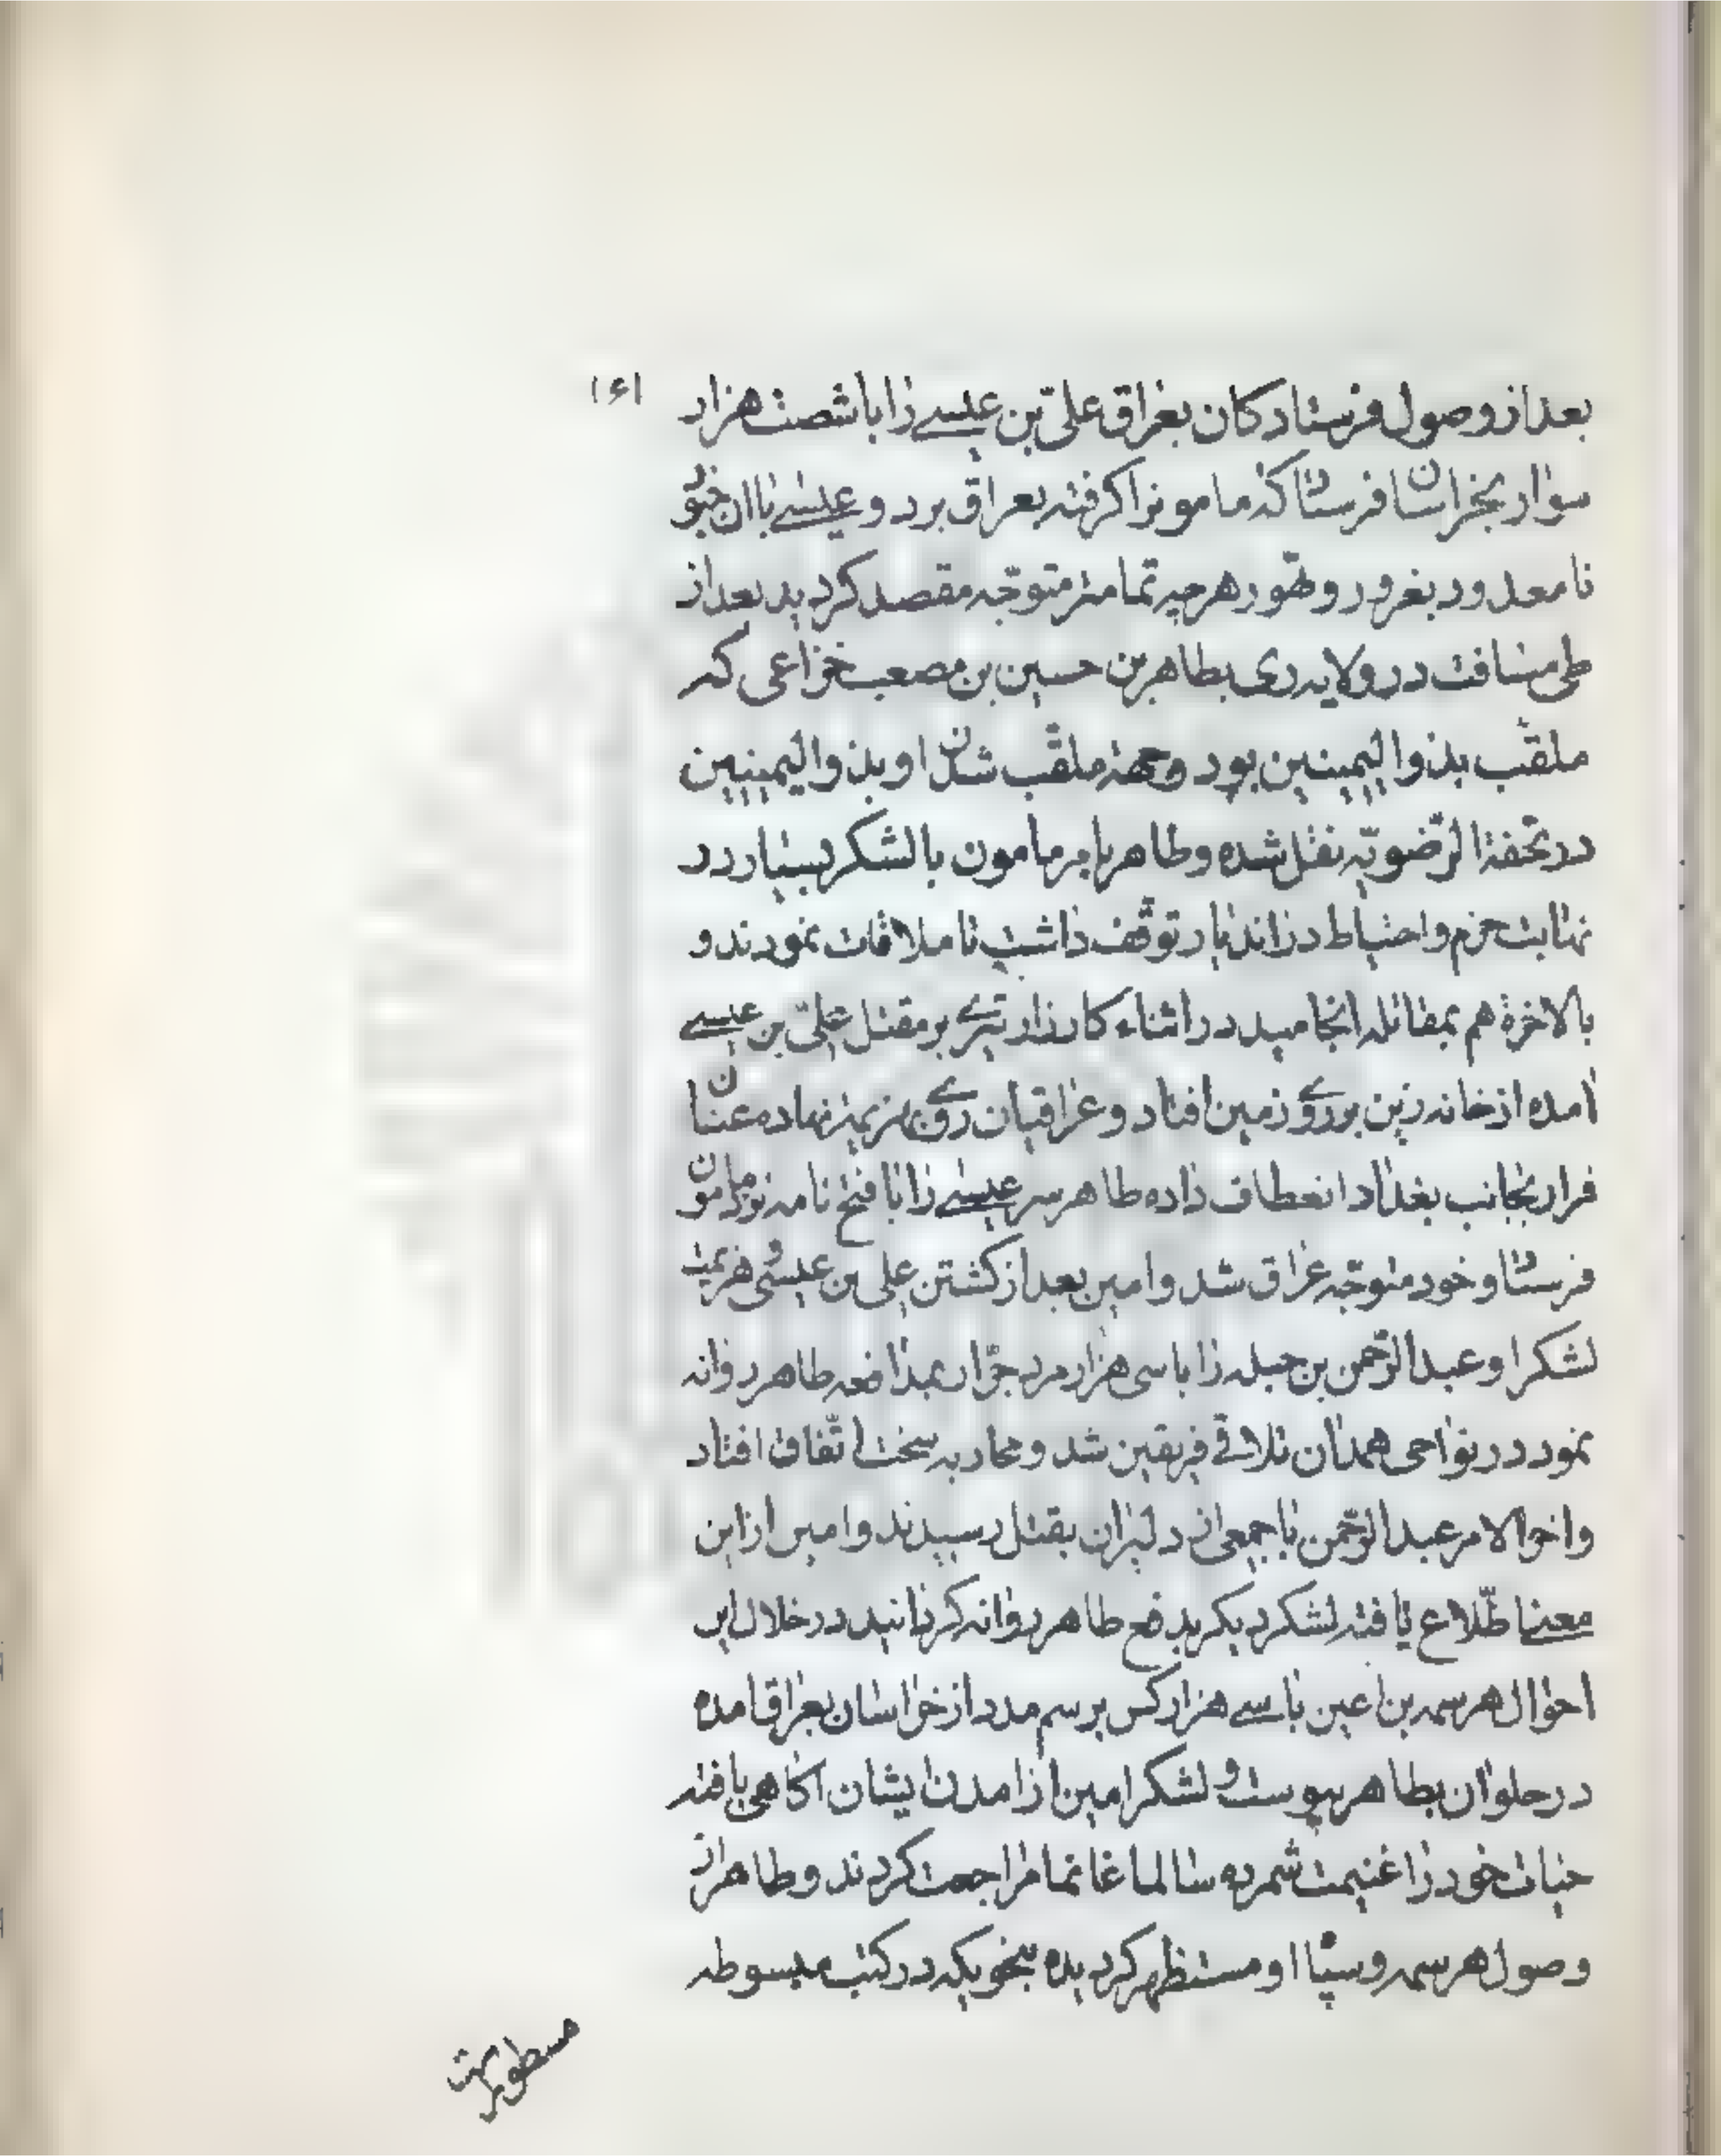 ۱۶۱
بعداز وصول فرستادکان بعراق علیّ بن عیسے را با شصت هزار
سوار بخراسان فرستاد که مامونرا کرفته بعراق برد و عیسے باان جنود
نامعدود بغرور و تهّور هرچه تمامتر متوجّه مقصد کردید بعداز
طی مسافت در ولایه ری بطاهر بن حسین بن مصعب خزاعی که
ملقّب بذوالیمینین بود وجهة ملقّب شدن او بذوالیمینین
در تحفة الرّضویّه نقل شده و طاهر بامر مامون با لشکر بسیار در
نهایت حزم واحتیاط دران دیار توقّف داشت تا ملاقات نمودند و
بالاخرة هم بمقاتله انجامید در اثناء کارزار تیرے بر مقتل علیّ بن عیسے
امده از خانه زین بر روے زمین افتاد و عراقیان روے بهزیمت نهاده عنان
فرار بجانب بغداد انعطاف داده طاهر سر عیسے را با فتح نامه نزد مامون
فرستاد و خود متوجّه عراق شد و امین بعد از کشتن علی بن عیسی و هزیمت
لشکر او عبدالرّحمن بن جبله را با سی هزار مرد جرّار بمدافعه طاهر روانه
نمود در نواحی همدان تلاقے فریقین شد و محاربه سخت اتّفاق افتاد
واخرالامر عبدالرّحمن با جمعی از دلیران بقتل رسیدند و امین از این
معنا اطّلاع یافته لشکر دیکر بدفع طاهر روانه کردانید در خلال این
احوال هرسمه بن اعین با سے هزار کس برسم مدد از خراسان بعراق امده
در حلوان بطاهر پیوست و لشکر امین از امدن ایشان اکاهی یافته
حیات خود را غنیمت شمرده سالما غانما مراجعت کردند و طاهر از
وصول هرسمه و سپاه او مستظهر کردیده بنحویکه در کتب مبسوطه
مسطور است